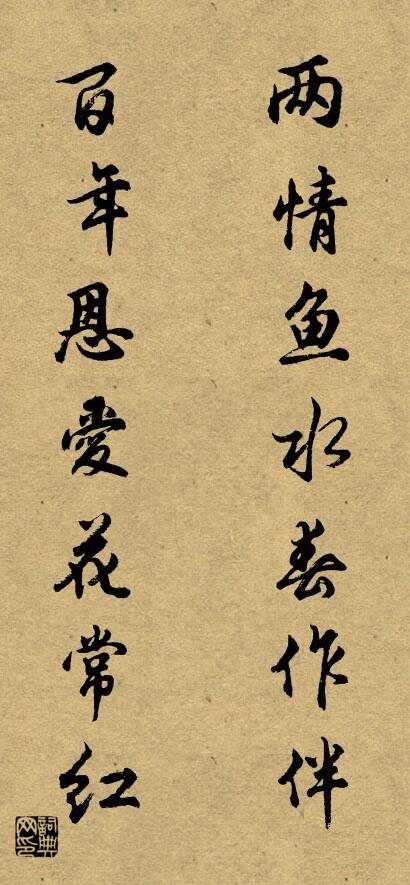 两情鱼水春作伴
百年恩爱花常红
詞典网印